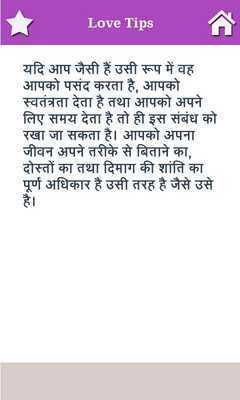 Love Tips
यदि आप जैसी हैं उसी रूप में वह
आपको पसंद करता है, आपको
स्वतंत्रता देता है तथा आपको अपने
लिए समय देता है तो ही इस संबंध को
रखा जा सकता है। आपको अपना
जीवन अपने तरीके से बिताने का,
दोस्तों का तथा दिमाग की शांति का
पूर्ण अधिकार है उसी तरह है जैसे उसे
है।